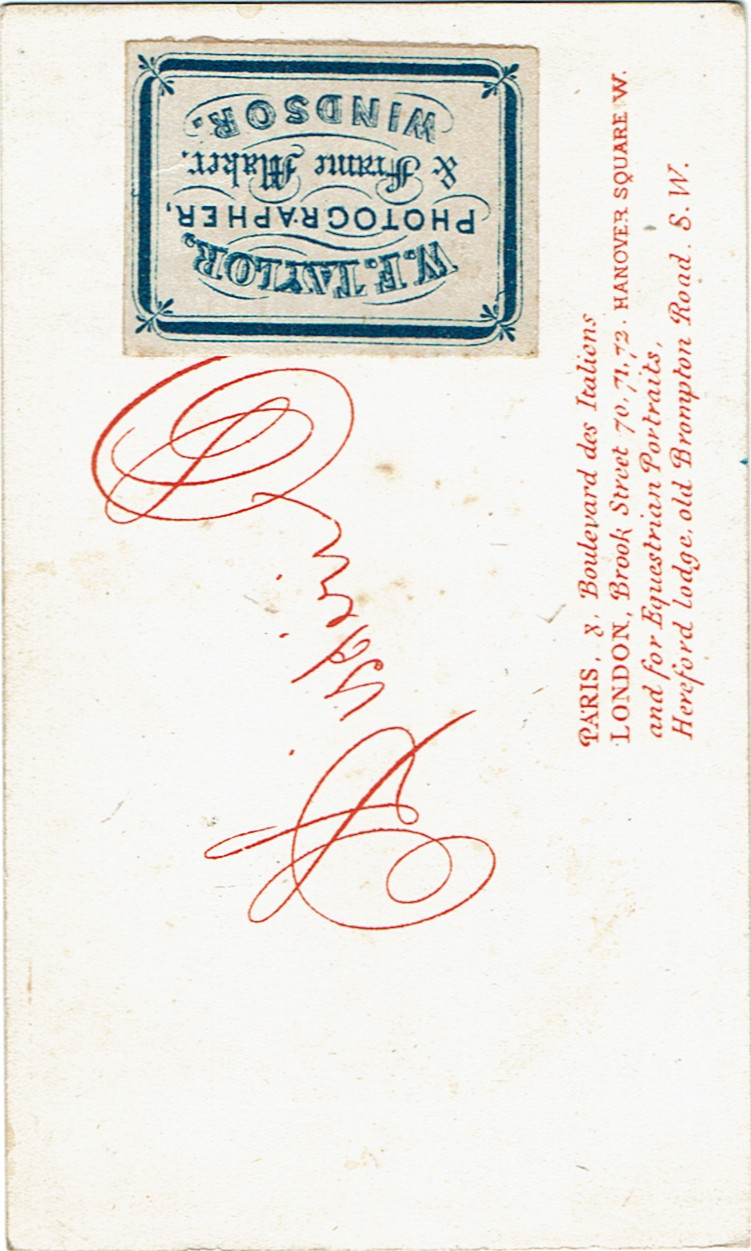 W.F. TAYLOR,
PHOTOGRAPHER,
& Frame Maker.
WINDSOR.
Disdéri
PARIS, 8, Boulevard des Italiens
LONDON, Brook Street 70, 71, 72. HANOVER SQUARE W.
and for Equestrian Portraits,
Hereford lodge, old Brompton Road. S.W.